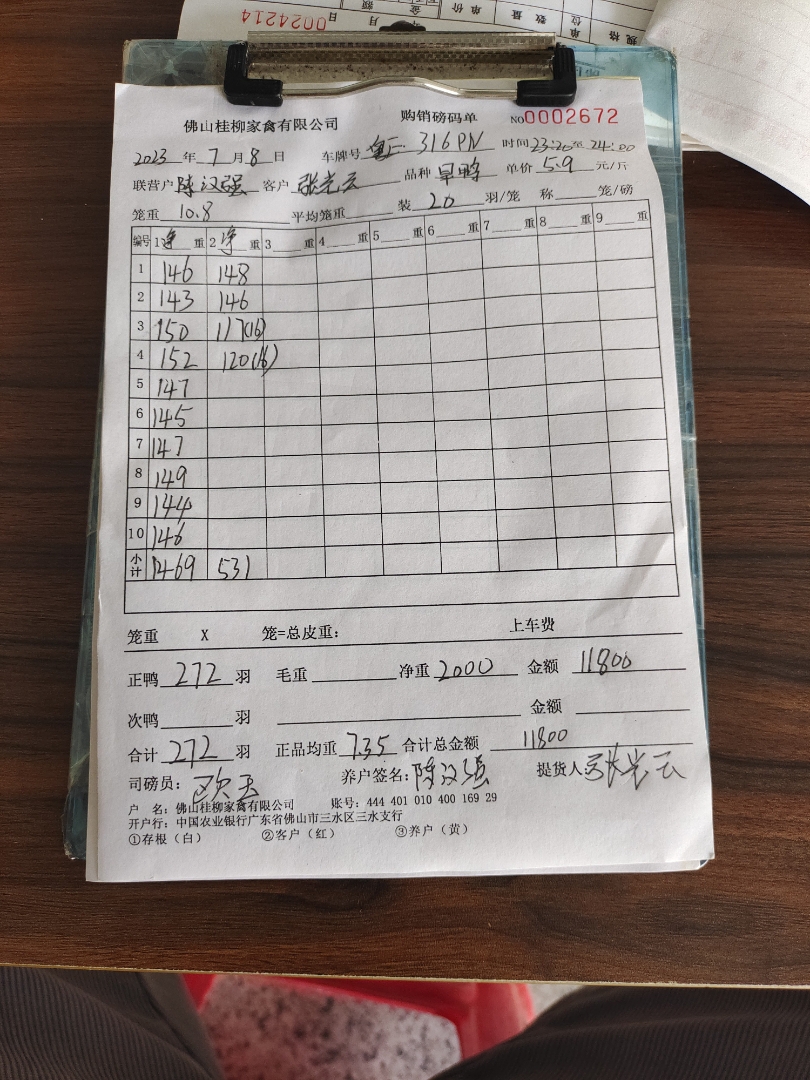 0024214
规格 单位 数量 单价 金额
月 日
佛山桂柳家禽有限公司 购销磅码单 NO0002672
2023年7月8日 车牌号 316PN 时间23:20至24:00
联营户 陈汉强 客户 张光云 品种 旱鸭 单价 5.9 元/斤
笼重 10.8 平均笼重 装 20 羽/笼 称 笼/磅
编号 1净重 2净重 3重 4重 5重 6重 7重 8重 9重
1 146 148
2 143 146
3 150 117(16)
4 152 120(16)
5 147
6 145
7 147
8 149
9 144
10 146
小计 1469 531
笼重 X 笼=总皮重: 上车费
正鸭 272 羽 毛重 净重 2000 金额 11800
次鸭 羽 金额
合计 272 羽 正品均重 7.35 合计总金额 11800
司磅员: 养户签名: 陈汉强 提货人 张光云
户 名: 佛山桂柳家禽有限公司 账号: 444 401 010 400 169 29
开户行: 中国农业银行广东省佛山市三水区三水支行
①存根(白) ②客户(红) ③养户(黄)